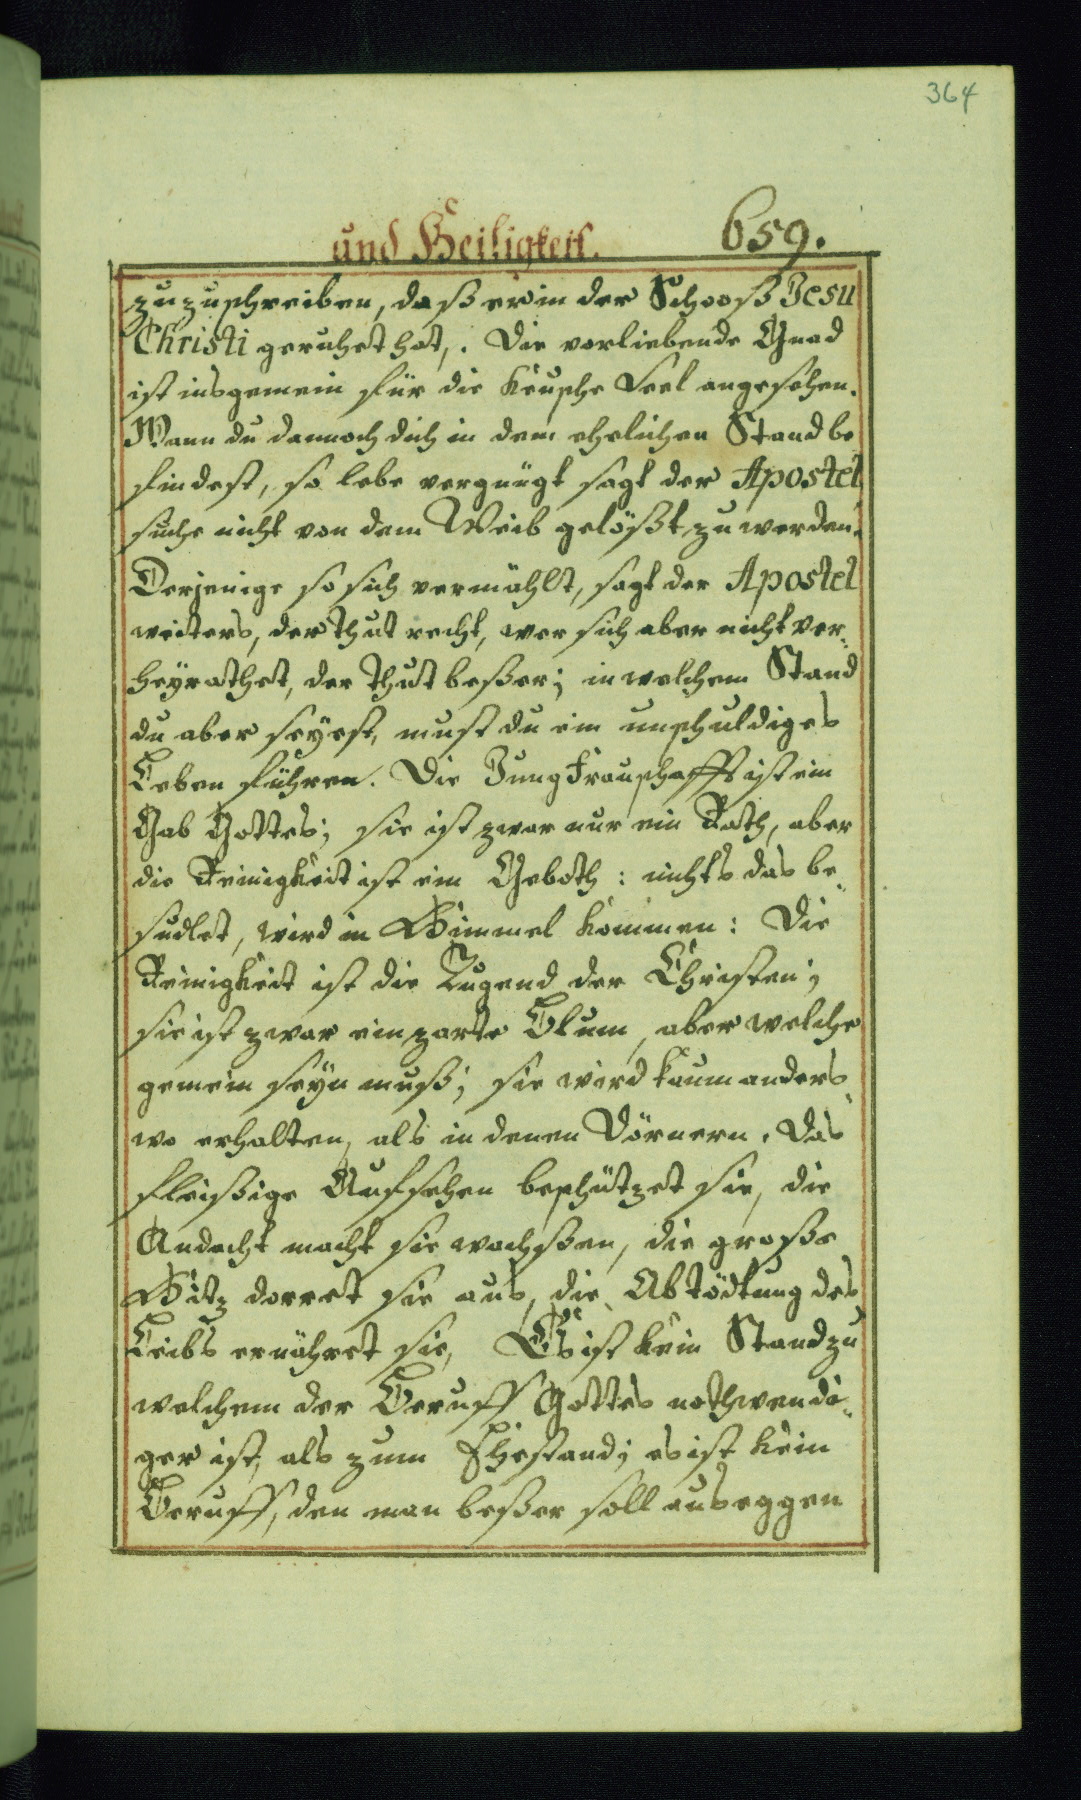 364
und Heiligkeit. 659.
zuzuschreiben, daß er in der Schooß Jesu
Christi geruhet hat,. Die vorliebende Gnad
ist insgemein für die keusche Seel angesehen.
Wann du dannoch dich in dem ehelichen Stand be
findest, so lebe vergnügt sagt der Apostel
suche nicht von dem Weib gelößt zu werden.
Derjenige so sich vermählt, sagt der Apostel
weiters, der thut recht, wer sich aber nicht ver-
heÿrathet, der thut beßer; in welchem Stand
du aber seyest, must du ein unschuldiges
Leben führen. Die Jungfrauschafft ist ein
Gab Gottes; sie ist zwar nur ein Rath, aber
die Reinigkeit ist ein Geboth: nichts das be-
sudlet, wird in Himmel kommen: Die
Reinigkeit ist die Tugend der Christen;
sie ist zwar ein zarte Blum, aber welche
gemein seÿn muß; sie wird kaum anders-
wo erhalten, als in denen Dörnern. Das
fleißige Aufsehen beschützet sie, die
Andacht macht sie wachsßen, die große
Hitz dorret sie aus, die Abtödtung des
Leibs ernähret sie, Es ist kein Stand zu
welchem der Beruff Gottes nothwendi-
ger ist, als zum Ehestand; es ist kein
Beruff, den man beßer soll auseggen